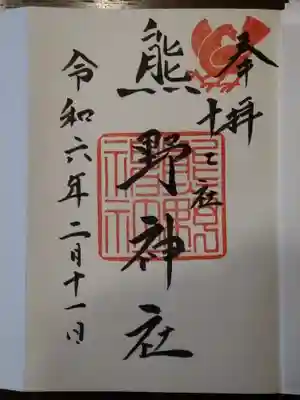 奉拝
十二社
熊野神社
令和六年二月十一日
熊野神社